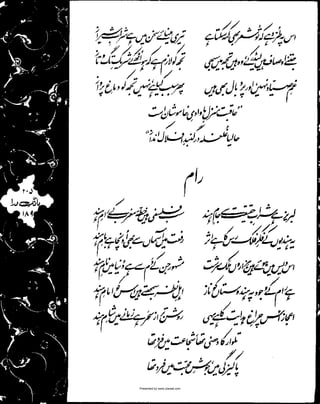 اس پہ طرّہ ہے کہ تو شعر بھی کہہ سکتا ہے تیری مینائے سخن میں ہے شرابِ شیراز
جتنے اوصاف ہیں لیڈر کے، وہ ہیں تجھ میں سبھی تجھ کو لازم ہے کہ ہو اُٹھ کے شریکِ تگ و تاز
غمِ صیّاد نہیں، اور پر و بال بھی ہیں پھر سبب کیا ہے، نہیں تجھ کو دماغِ پرواز
”عاقبت منزلِ ما وادیِ خاموشان است
حالیا غلغلہ در گنبدِ افلاک انداز“
رام
لبریز ہے شرابِ حقیقت سے جامِ ہند سب فلسفی ہیں خطّۂ مغرب کے رامِ ہند
یہ ہندیوں کے فکرِ فلک رس کا ہے اثر رفعت میں آسماں سے بھی اونچا ہے بامِ ہند
اس دیس میں ہوئے ہیں ہزاروں ملَک سرشت مشہور جن کے دم سے ہے دنیا میں نامِ ہند
ہے رام کے وجود پہ ہندوستاں کو ناز اہلِ نظر سمجھتے ہیں اس کو امامِ ہند
اعجاز اس چراغِ ہدایت کا ہے یہی روشن تر از سحر ہے زمانے میں شامِ ہند
تلوار کا دھنی تھا، شجاعت میں فرد تھا
پاکیزگی میں، جوشِ محبت میں فرد تھا
۲۰۵
بانگِ درا
۱۸۹